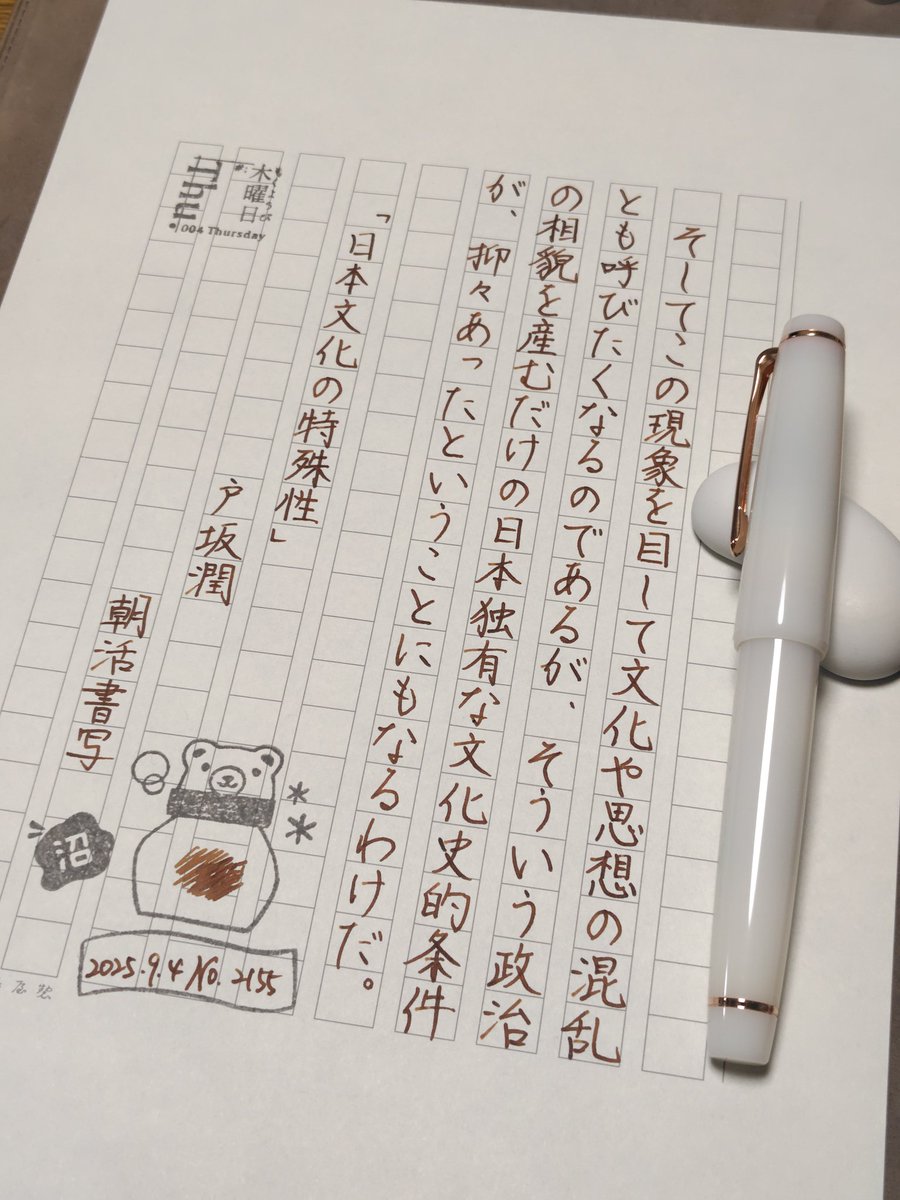 そしてこの現象を目して文化や思想の混乱
とも呼びたくなるのであるが、そういう政治
の相貌を産むだけの日本独有な文化史的条件
が、抑々あったということにもなるわけだ。
「日本文化の特殊性」
戸坂潤
朝活書写
もくようび
木曜日
Thu.
004 Thursday
沼
2025.9.4 No.2155